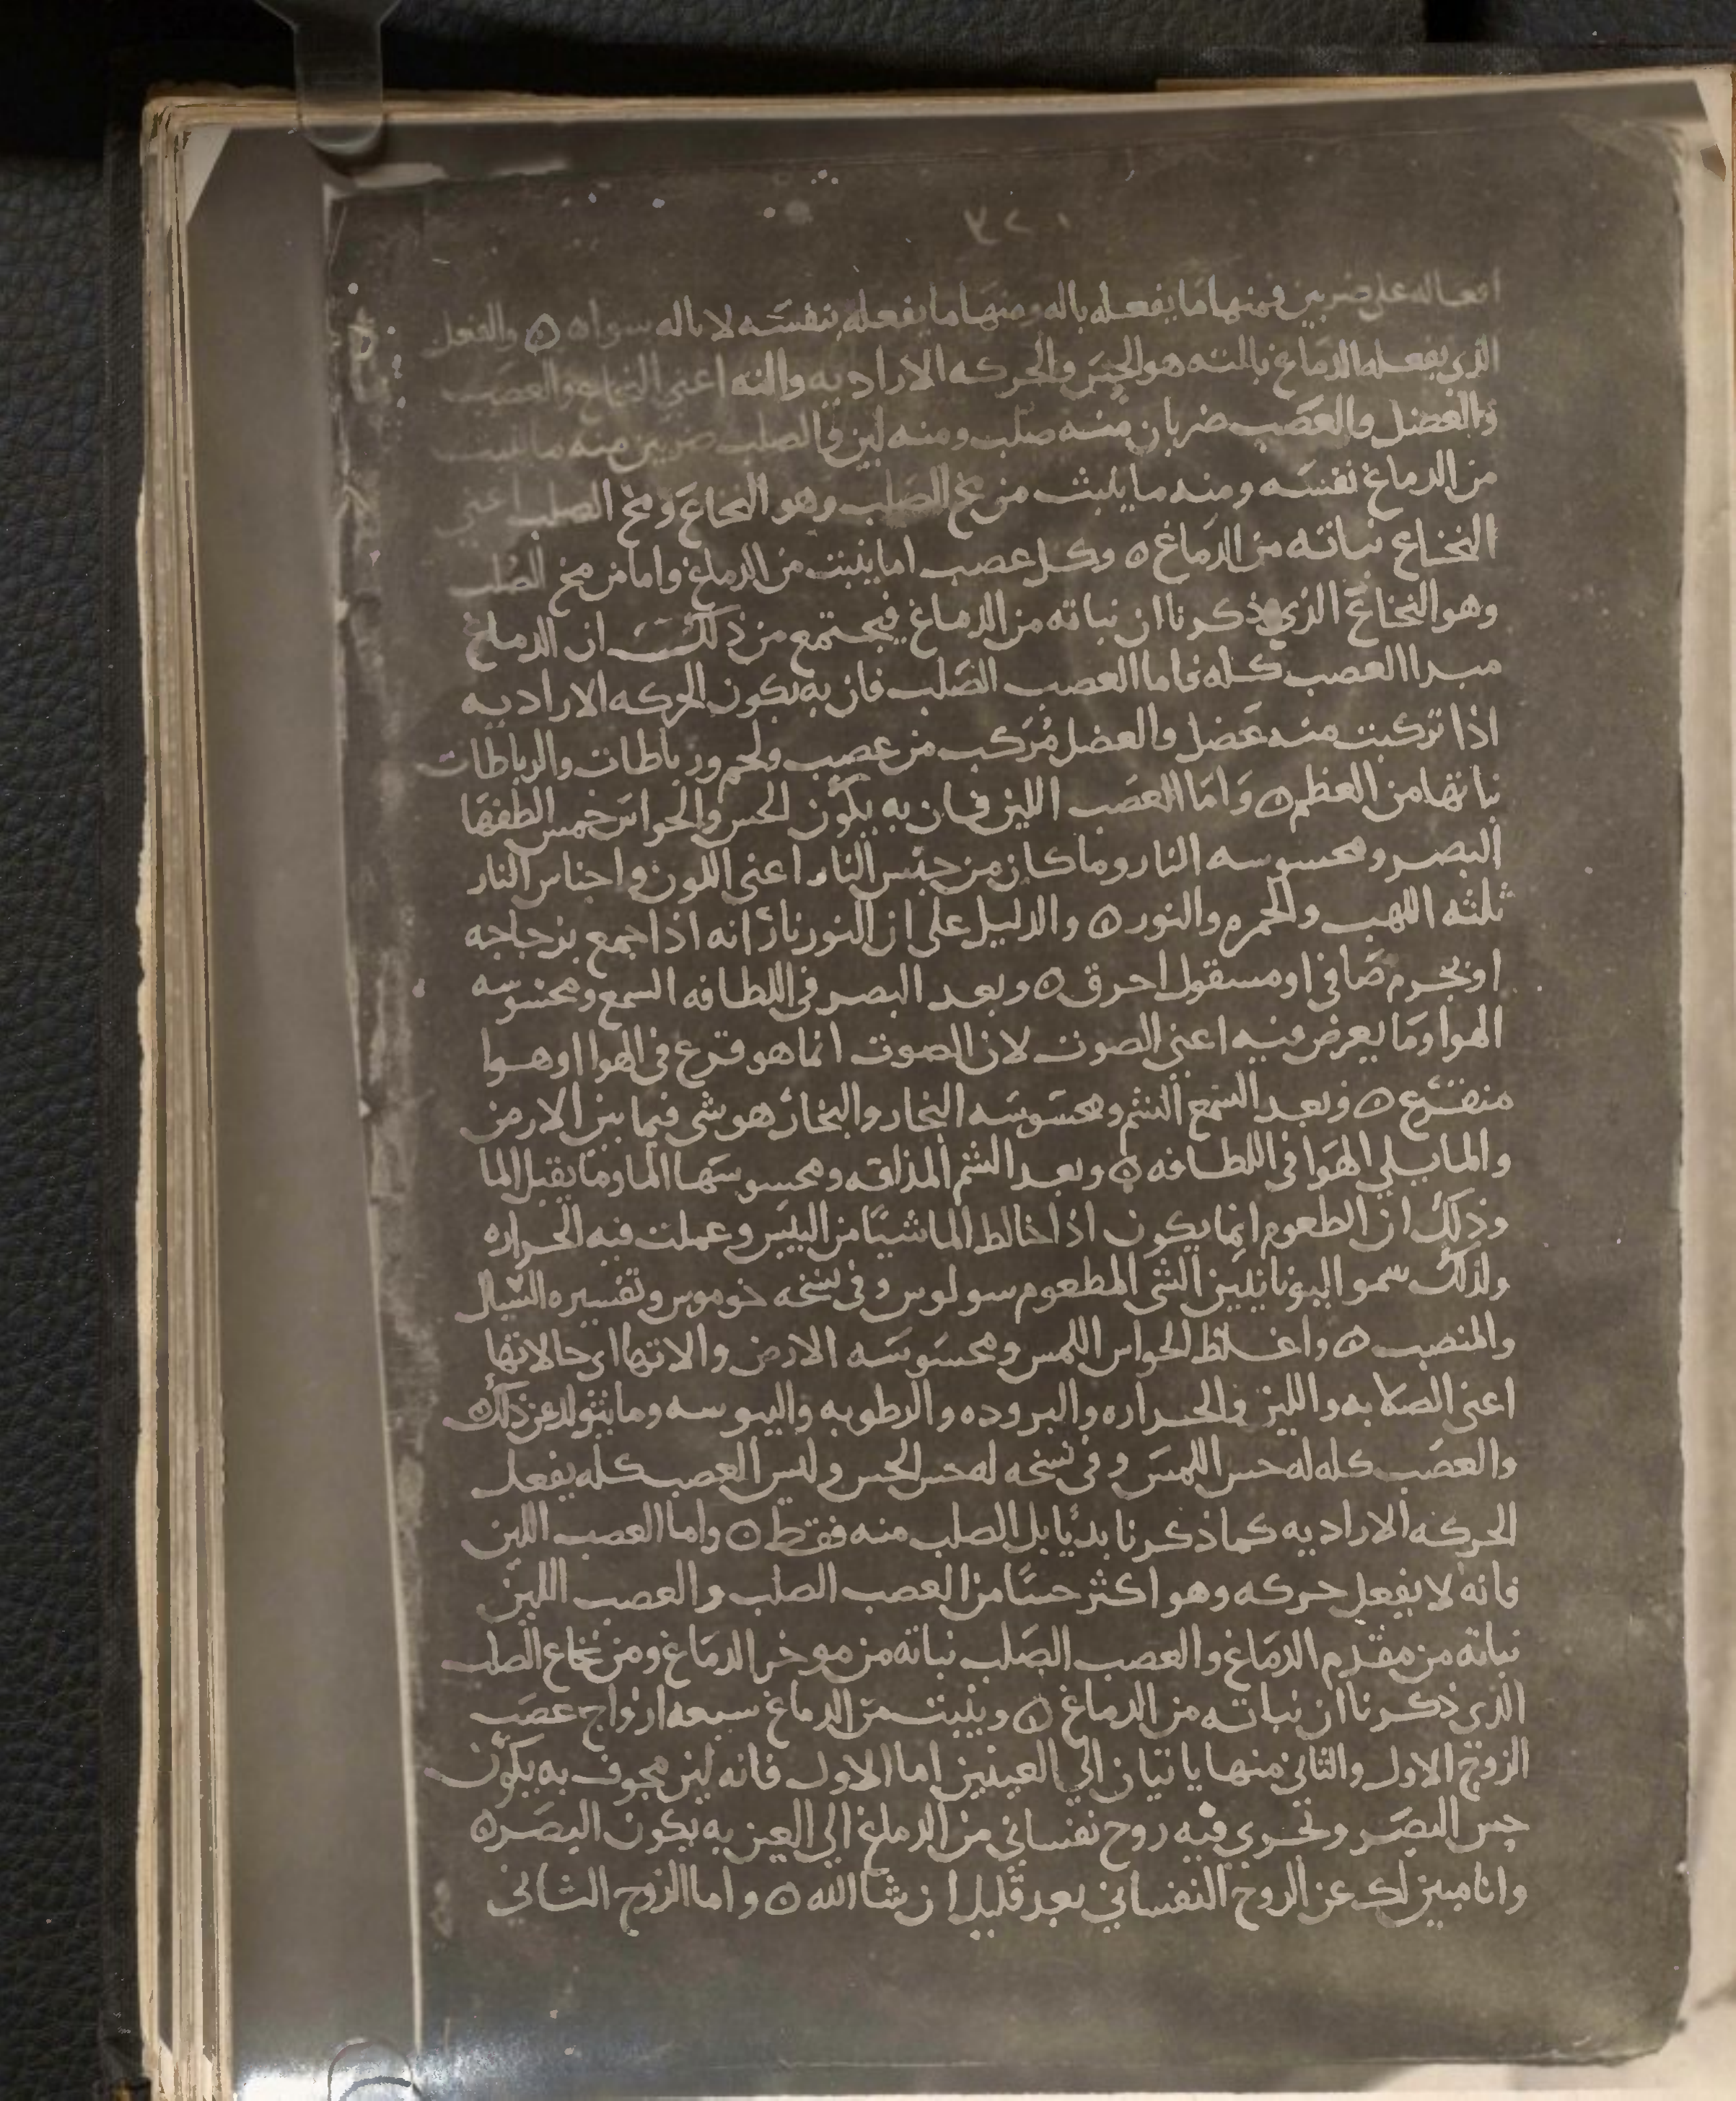 افعاله على ضربين فمنها ما يفعله باله ومنها ما يفعله بنفسه لا باله سواه ٥ والفعل
الذي يفعله الدماغ بالته هو الحس والحركه الاراديه والته اعني النخاع والعصب
والعضل والعصب ضربان منه صلب ومنه لين والصلب ضربين منه ما ينبت
من الدماغ نفسه ومنه ما ينبت من مخ الصلب وهو النخاع ومخ الصلب اعني
النخاع نباته من الدماغ ٥ وكل عصب اما ينبت من الدماغ واما من مخ الصلب
وهو النخاع الذي ذكرنا ان نباته من الدماغ فيجتمع من ذلك ان الدماغ
مبدا العصب كله فاما العصب الصلب فان به يكون الحركه الاراديه
اذا تركبت منه عضل والعضل مركب من عصب ولحم ورباطات والرباطات
نباتها من العظم ٥ واما العصب اللين فان به يكون الحس والحواس خمس الطفها
البصر ومحسوسه النار وما كان من جنس النار اعني اللون واجناس النار
ثلثه اللهب والجمره والنور ٥ والدليل على ان النور نار انه اذا جمع بزجاجه
او بجرم صافي او مسقول احرق ٥ وبعد البصر في اللطافه السمع ومحسوسه
الهوا وما يعرض فيه اعني الصوت لان الصوت انما هو قرع في الهوا او هوا
منقرع ٥ وبعد السمع الشم ومحسوسه البخار والبخار هو شي فيما بين الارض
والما يلي الهوا في اللطافه ٥ وبعد الشم المذاقه ومحسوسها الما وما يقبل الما
وذلك ان الطعوم انما يكون اذا خالط الما شيا من اليبس وعملت فيه الحراره
ولذلك سموا اليونانيين الشي المطعوم سولوس وفي نسخه خوموس وتفسيره السيال
والمنصب ٥ واغلظ الحواس اللمس ومحسوسه الارض والاتها اي حالاتها
اعني الصلابه واللين والحراره والبروده والرطوبه واليبوسه وما يتولد عن ذلك
والعصب كله له حس اللمس وفي نسخه له حس الحس وليس العصب كله يفعل
الحركه الاراديه كما ذكرنا بديا بل الصلب منه فقط ٥ واما العصب اللين
فانه لا يفعل حركه وهو اكثر حسا من العصب الصلب والعصب اللين
نباته من مقدم الدماغ والعصب الصلب نباته من موخر الدماغ ومن نخاع الصلب
الذي ذكرنا ان نباته من الدماغ ٥ وينبت من الدماغ سبعه ازواج عصب
الزوج الاول والثاني منها ياتيان الي العينين اما الاول فانه لين مجوف به يكون
حس البصر وتجري فيه روح نفساني من الدماغ الي العين به يكون البصر ٥
وانا مبين لك عن الروح النفساني بعد قليل ان شا الله ٥ واما الزوج الثاني